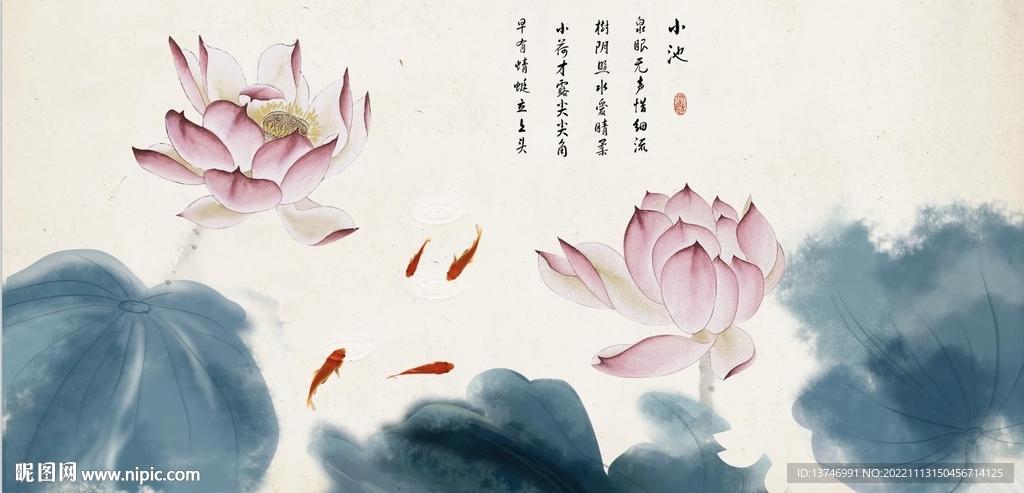 小池
泉眼无声惜细流
樹阴照水爱晴柔
小荷才露尖尖角
早有蜻蜓立上头
昵图网 www.nipic.com
ID:13746991 NO:20221113150456714125